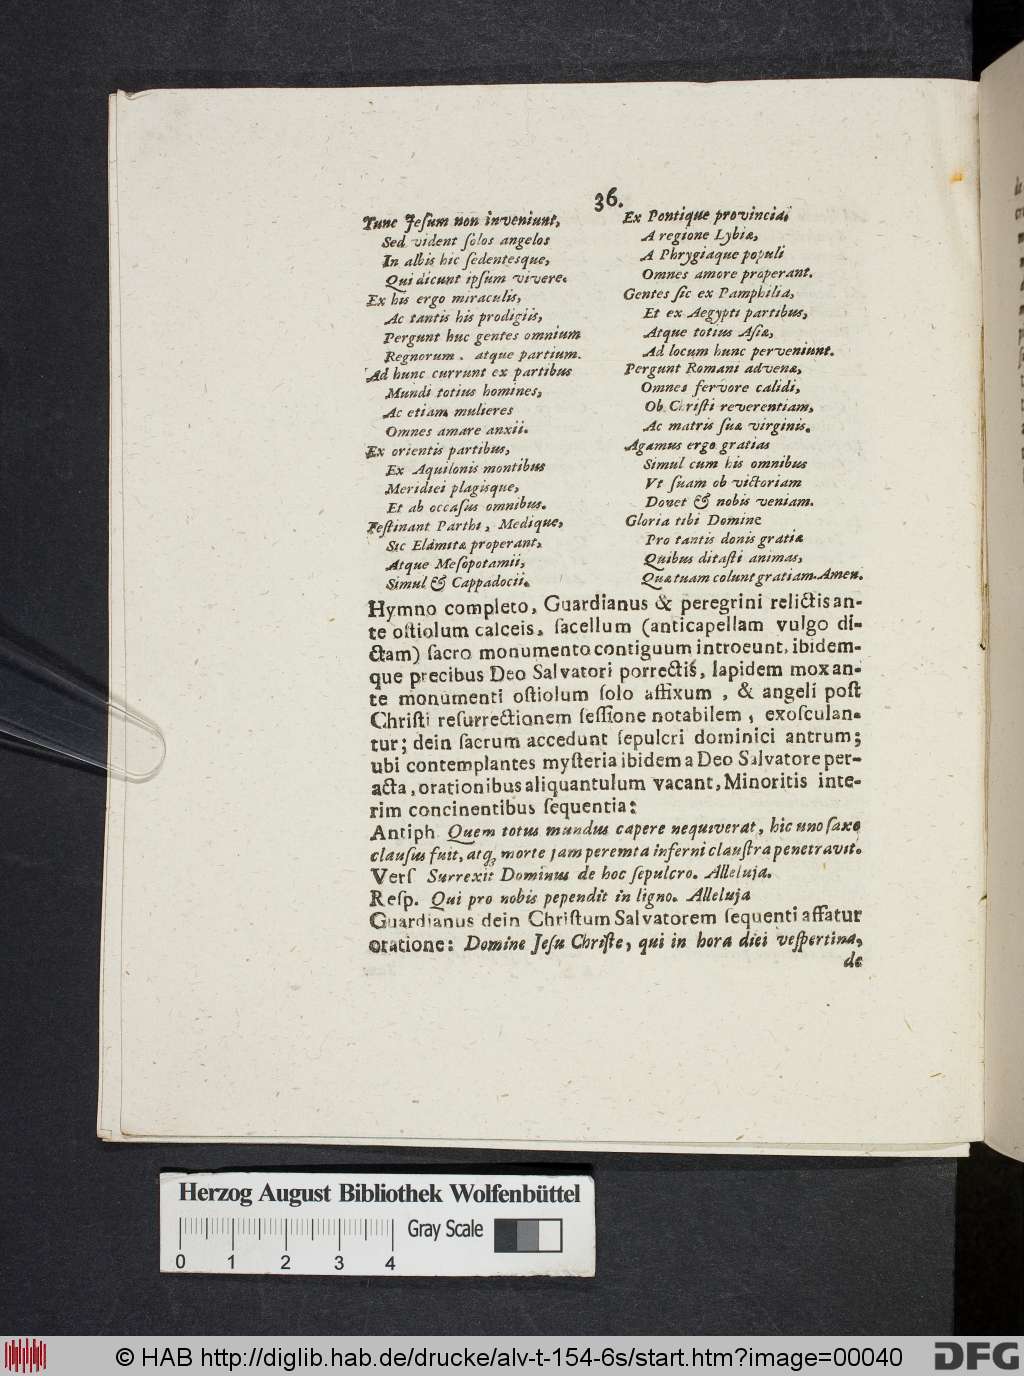 36.
Tunc Jeſum non inveniunt,
Sed vident ſolos angelos
In albis hic ſedentesque,
Qui dicunt ipſum vivere.
Ex his ergo miraculis,
Ac tantis his prodigiis,
Pergunt huc gentes omnium
Regnorum. atque partium.
Ad hunc currunt ex partibus
Mundi totius homines,
Ac etiam mulieres
Omnes amare anxii.
Ex orientis partibus,
Ex Aquilonis montibus
Meridiei plagisque,
Et ab occaſus omnibus.
Feſtinant Parthi, Medique,
Sic Elamitæ properant,
Atque Meſopotamii,
Simul & Cappadocii.
Ex Pontique provincia,
A regione Lybiæ,
A Phrygiaque populi
Omnes amore properant.
Gentes ſic ex Pamphilia,
Et ex Aegypti partibus,
Atque totius Aſiæ,
Ad locum hunc perveniunt.
Pergunt Romani advenæ,
Omnes fervore calidi,
Ob Chriſti reverentiam,
Ac matris ſuæ virginis.
Agamus ergo gratias
Simul cum his omnibus
Vt ſuam ob victoriam
Donet & nobis veniam.
Gloria tibi Domine
Pro tantis donis gratiæ
Quibus ditaſti animas,
Quæ tuam colunt gratiam. Amen.
Hymno completo, Guardianus & peregrini relictis an-
te oſtiolum calceis, ſacellum (anticapellam vulgo di-
ctam) ſacro monumento contiguum introeunt, ibidem-
que precibus Deo Salvatori porrectis, lapidem mox an-
te monumenti oſtiolum ſolo affixum, & angeli poſt
Chriſti reſurrectionem ſeſſione notabilem, exoſculan-
tur; dein ſacrum accedunt ſepulcri dominici antrum;
ubi contemplantes myſteria ibidem a Deo Salvatore per-
acta, orationibus aliquantulum vacant, Minoritis inte-
rim concinentibus ſequentia:
Antiph Quem totus mundus capere nequiverat, hic uno ſaxo
clauſus fuit, atq; morte jam peremta inferni clauſtra penetravit.
Verſ Surrexit Dominus de hoc ſepulcro. Alleluja.
Reſp. Qui pro nobis pependit in ligno. Alleluja
Guardianus dein Chriſtum Salvatorem ſequenti affatur
oratione: Domine Jeſu Chriſte, qui in hora diei veſpertina,
de
Herzog August Bibliothek Wolfenbüttel
Gray Scale
0 1 2 3 4
© HAB http://diglib.hab.de/drucke/alv-t-154-6s/start.htm?image=00040
DFG